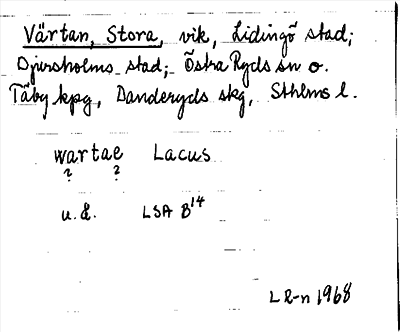 Värtan, Stora, vik, Lidingö stad;
Djursholms stad; Östra Ryds sn o.
Täby kpg, Danderyds skg, Sthlms l.
wartae Lacus
? ?
u.å. LSA B14
LR-n 1968